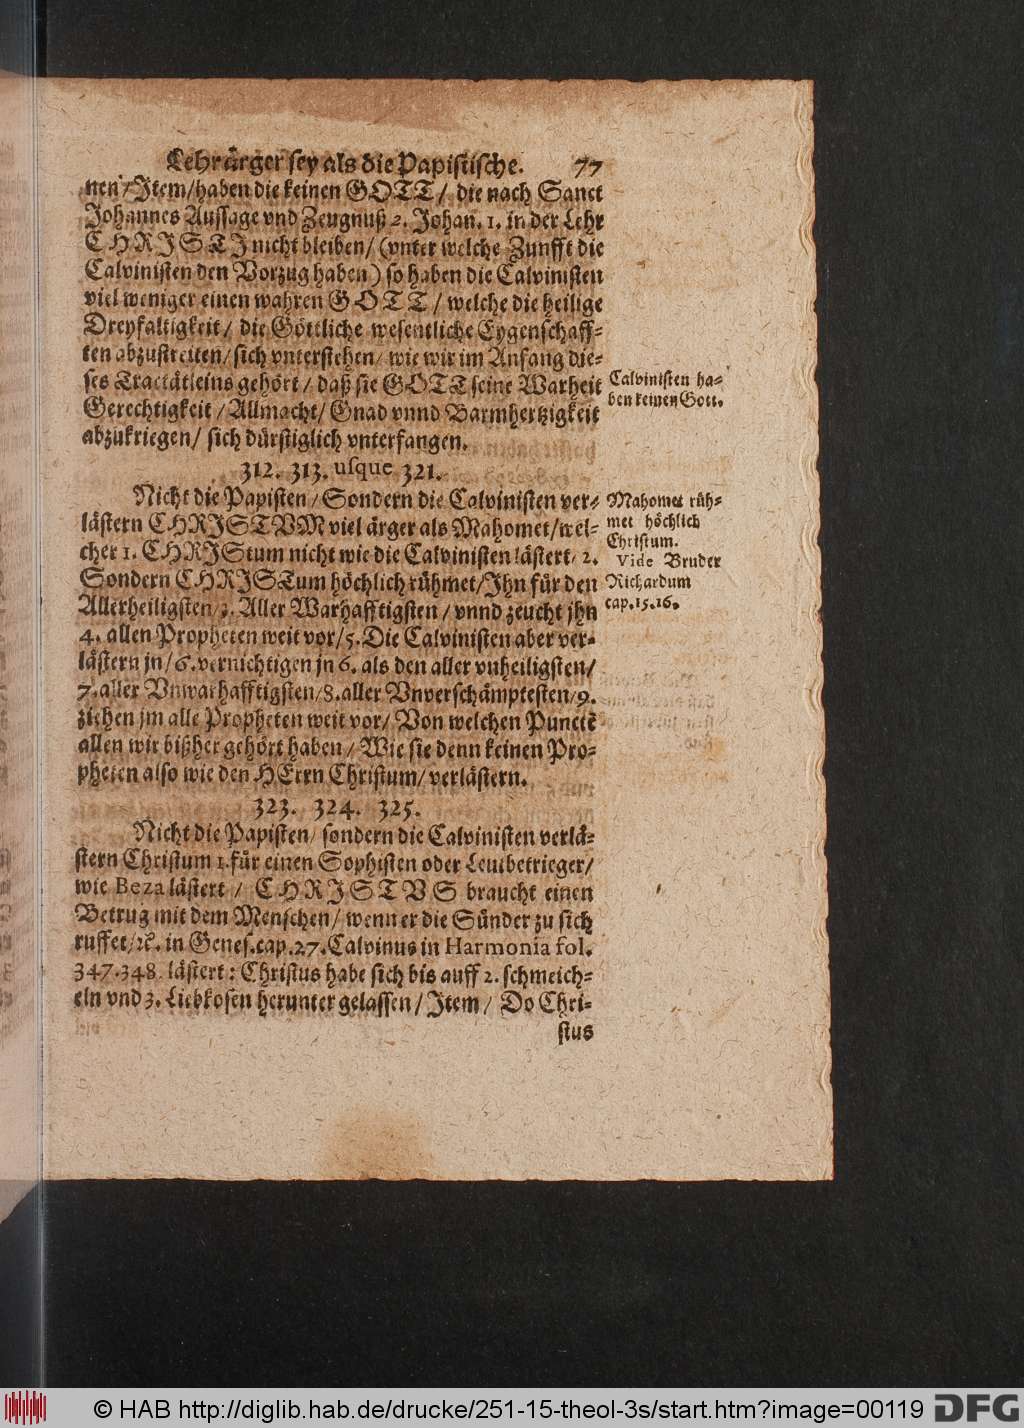 Lehr ärger sey als die Papistische. 77
nen / Item / haben die keinen GOTT / die nach Sanct
Johannes Aussage vnd Zeugnuß 2. Johan. 1. in der Lehr
CHRISTI nicht bleiben / (vnter welche Zunfft die
Calvinisten den Vorzug haben) so haben die Calvinisten
viel weniger einen wahren GOTT / welche die heilige
Dreyfaltigkeit / die Göttliche wesentliche Eygenschaff-
ten abzustreiten / sich vnterstehen / wie wir im Anfang die-
ses Tractätleins gehört / daß sie GOTT seine Warheit
Gerechtigkeit / Allmacht / Gnad vnnd Barmhertzigkeit
abzukriegen / sich dürstiglich vnterfangen.
Calvinisten ha-
ben keinen Gott.
312. 313. usque 321.
Nicht die Papisten / Sondern die Calvinisten ver-
lästern CHRISTVM viel ärger als Mahomet / wel-
cher 1. CHRIStum nicht wie die Calvinisten lästert / 2.
Sondern CHRISTum höchlich rühmet / Ihn für den
Allerheiligsten / 3. Aller Warhafftigsten / vnnd zeucht jhn
4. allen Propheten weit vor / 5. Die Calvinisten aber ver-
lästern jn / 6. vernichtigen jn 6. als den aller vnheiligsten /
7. aller Vnwarhafftigsten / 8. aller Vnverschämptesten / 9.
ziehen jm alle Propheten weit vor / Von welchen Punctē
allen wir bißher gehört haben / Wie sie denn keinen Pro-
pheten also wie den HErrn Christum / verlästern.
Mahomet rüh-
met höchlich
Christum.
Vide Bruder
Richardum
cap. 15. 16.
323. 324. 325.
Nicht die Papisten / sondern die Calvinisten verlä-
stern Christum 1. für einen Sophisten oder Leutbetrieger /
wie Beza lästert / CHRISTVS braucht einen
Betrug mit dem Menschen / wenn er die Sünder zu sich
ruffet / ꝛc. in Genes. cap. 27. Calvinus in Harmonia fol.
347. 348. lästert : Christus habe sich bis auff 2. schmeich-
eln vnd 3. Liebkosen herunter gelassen / Item / Do Chri-
stus
© HAB http://diglib.hab.de/drucke/251-15-theol-3s/start.htm?image=00119
DFG